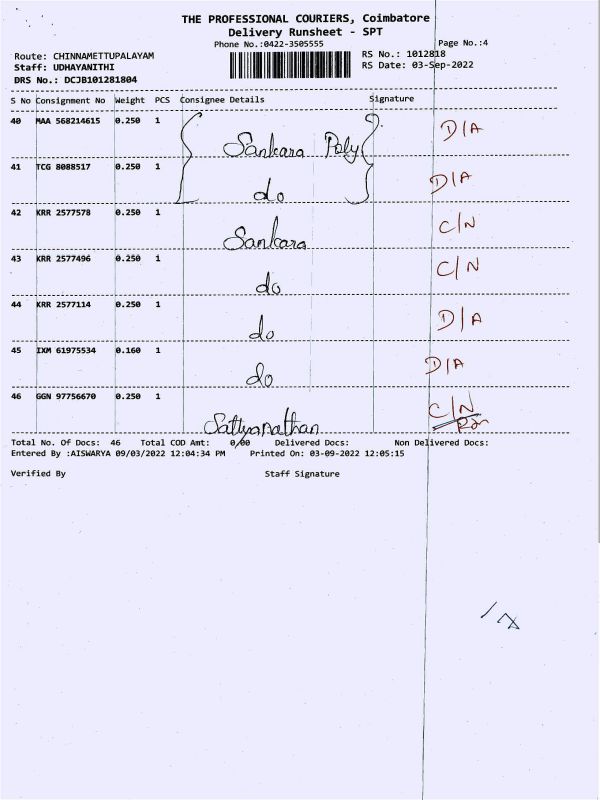 THE PROFESSIONAL COURIERS, Coimbatore
Delivery Runsheet - SPT
Phone No.:0422-3505555 Page No.:4
Route: CHINNAMETTUPALAYAM RS No.: 1012818
Staff: UDHAYANITHI RS Date: 03-Sep-2022
DRS No.: DCJB101281804
S No Consignment No Weight PCS Consignee Details Signature
40 MAA 568214615 0.250 1 Sankara Poly D/A
41 TCG 8088517 0.250 1 do D/A
42 KRR 2577578 0.250 1 Sankara C/N
43 KRR 2577496 0.250 1 do C/N
44 KRR 2577114 0.250 1 do D/A
45 IXM 61975534 0.160 1 do D/A
46 GGN 97756670 0.250 1 Sattyanathan C/N
Total No. Of Docs: 46 Total COD Amt: 0/00 Delivered Docs: Non Delivered Docs:
Entered By :AISWARYA 09/03/2022 12:04:34 PM Printed On: 03-09-2022 12:05:15
Verified By Staff Signature